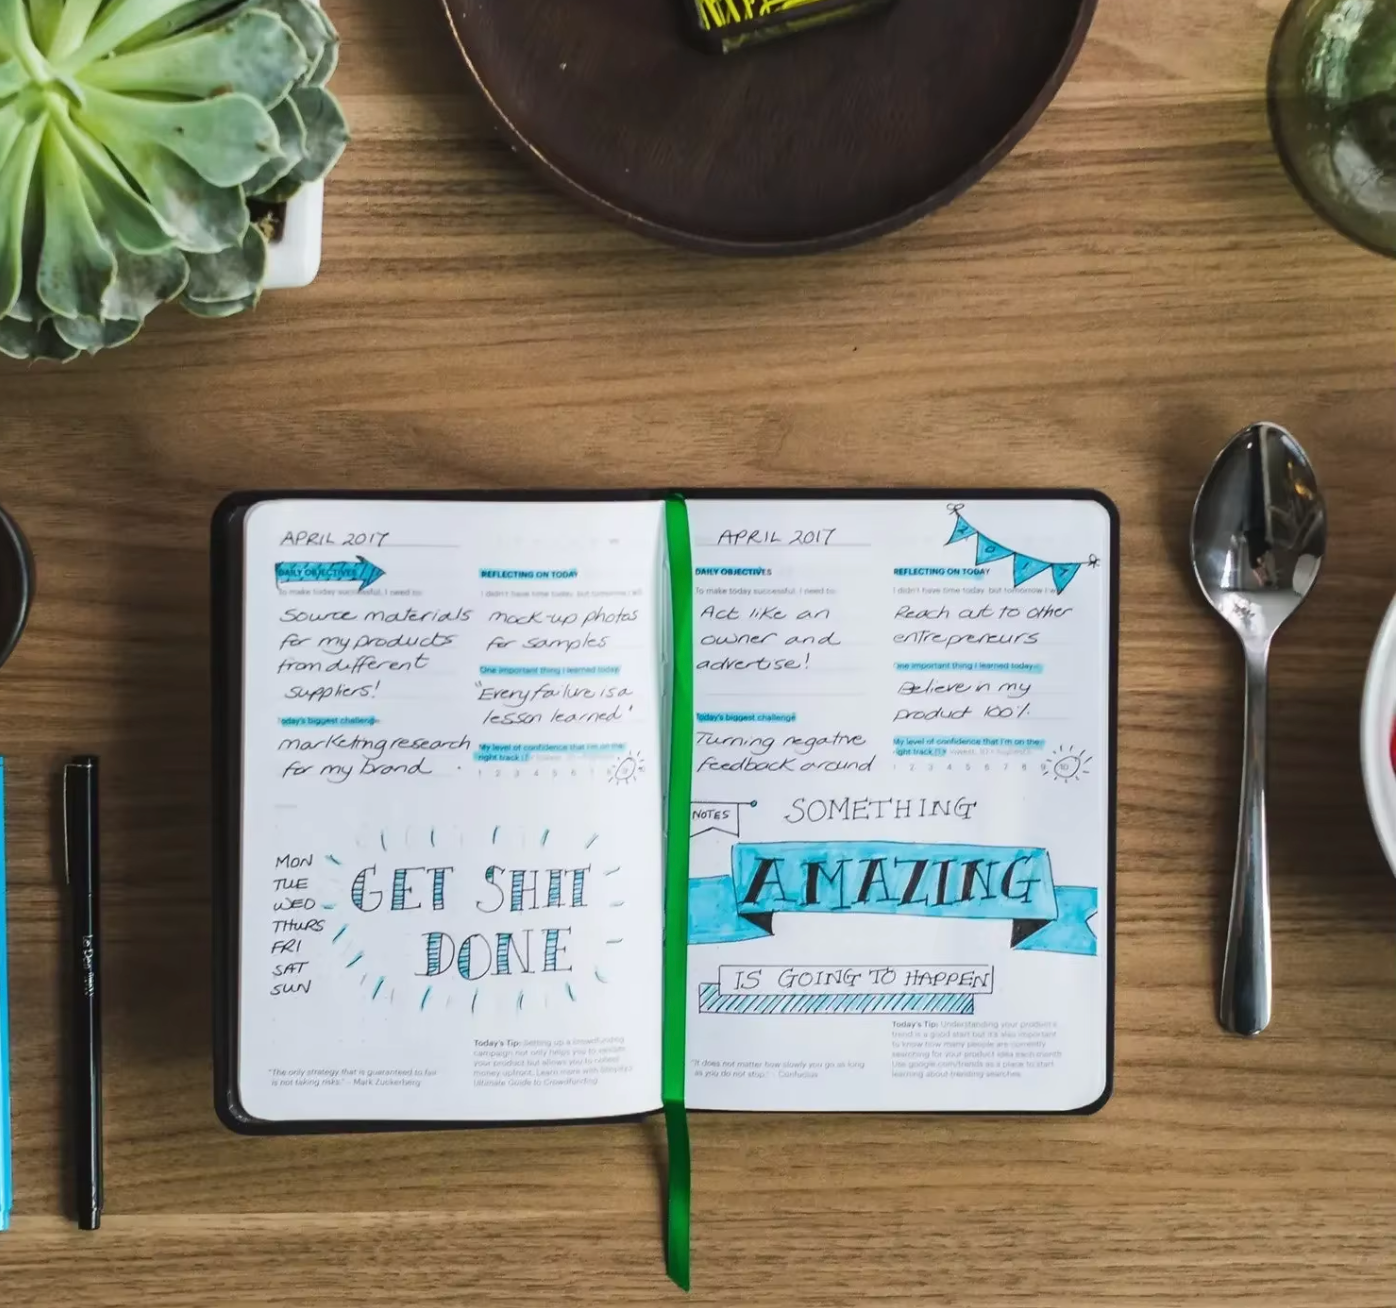 APRIL 2017
DAILY OBJECTIVES
To make today successful, I need to:
Source materials
for my products
from different
suppliers!
Today's biggest challenge
marketing research
for my brand
REFLECTING ON TODAY
I didn't have time today, but tomorrow I will
mock-up photos
for samples
One important thing I learned today
"Every failure is a
lesson learned"
My level of confidence that I'm on the
right track
1 2 3 4 5 6 7 8 9
MON
TUE
WED
THURS
FRI
SAT
SUN
GET SHIT
DONE
"The only strategy that is guaranteed to fail
is not taking risks." - Mark Zuckerberg
Today's Tip: Setting up a crowdfunding
campaign not only helps you to validate
your product but allows you to collect
money upfront. Learn more with Shopify's
Ultimate Guide to Crowdfunding
APRIL 2017
DAILY OBJECTIVES
To make today successful, I need to:
Act like an
owner and
advertise!
Today's biggest challenge
Turning negative
feedback around
REFLECTING ON TODAY
I didn't have time today, but tomorrow I
Reach out to other
entrepreneurs
One important thing I learned today
Believe in my
product 100%
My level of confidence that I'm on the
right track
1 2 3 4 5 6 7 8 9 10
NOTES
SOMETHING
AMAZING
IS GOING TO HAPPEN
"It does not matter how slowly you go as long
as you do not stop." - Confucius
Today's Tip: Understanding your product's
trend is a good start but it's also important
to know how many people are currently
searching for your product idea each month.
Use google.com/trends as a place to start
learning about trending searches.